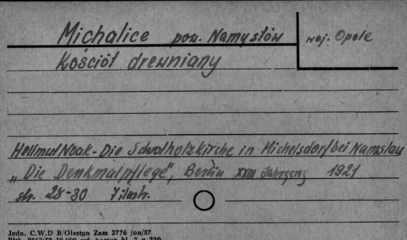 Michalice pow. Namysłów woj. Opole
Kościół drewniany
Hellmut Noak - Die Schrotholzkirche in Michelsdorf bei Namslau
„Die Denkmalpflege", Berlin XXIII Jahrgang 1921
str. 28-30 7 ilustr.
Jedn. C.W.D B/Olsztyn Zam 2776 /on/57